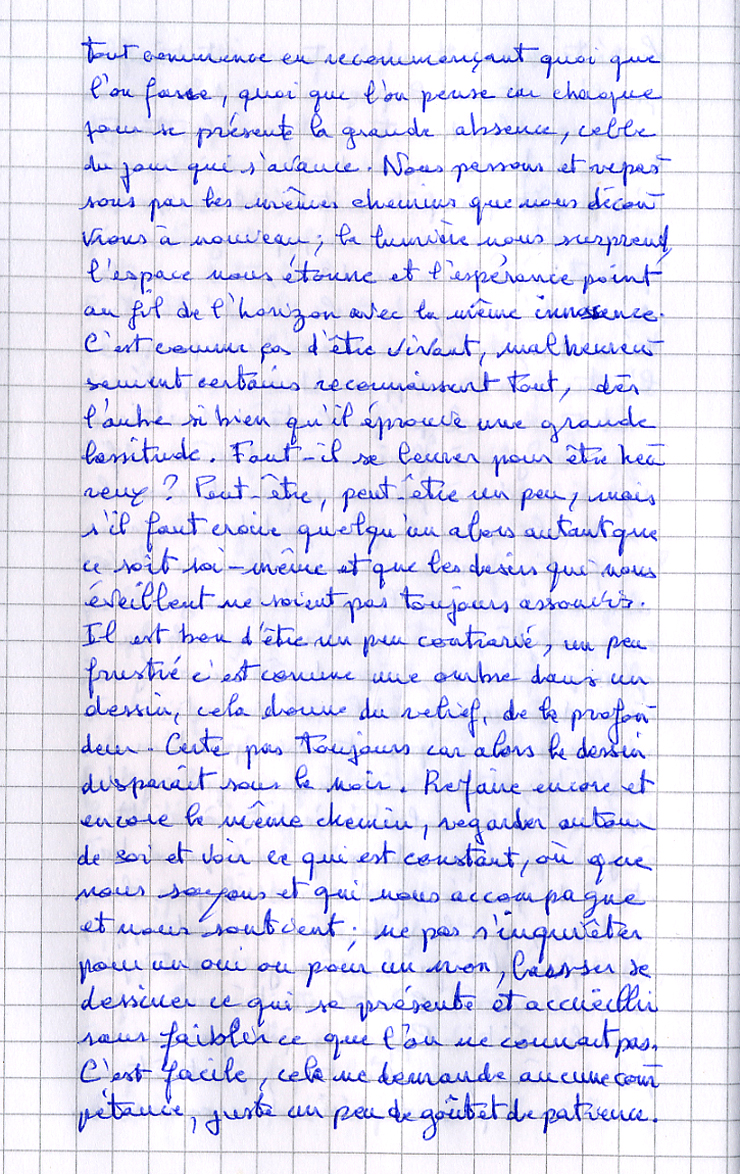 tout commence en recommençant quoi que
l'on fasse, quoi que l'on pense car chaque
jour se présente la grande absence, celle
du jour qui s'avance. Nous passons et repas
sons par les mêmes chemins que nous décou
vrons à nouveau; la lumière nous surprend,
l'espace nous étonne et l'espérance point
au fil de l'horizon avec la même innocence.
C'est comme ça d'être vivant, malheureu
sement certains reconnaissent tout, dès
l'aube si bien qu'il éprouve une grande
lassitude. Faut-il se leurrer pour être heu
reux ? Peut-être, peut-être un peu, mais
s'il faut croire quelqu'un alors autant que
ce soit soi-même et que les désirs qui nous
éveillent ne soient pas toujours assouvis.
Il est bon d'être un peu contrarié, un peu
frustré c'est comme une ombre dans un
dessin, cela donne du relief, de la profon
deur. Certe pas toujours car alors le dessin
disparaît sous le noir. Refaire encore et
encore le même chemin, regarder autour
de soi et voir ce qui est constant, où que
nous soyons et qui nous accompagne
et nous soutient; ne pas s'inquiéter
pour un oui ou pour un non, laisser se
dessiner ce qui se présente et accueillir
sans faiblir ce que l'on ne connait pas.
C'est facile, cela ne demande aucune com
pétance, juste un peu de goût et de patience.